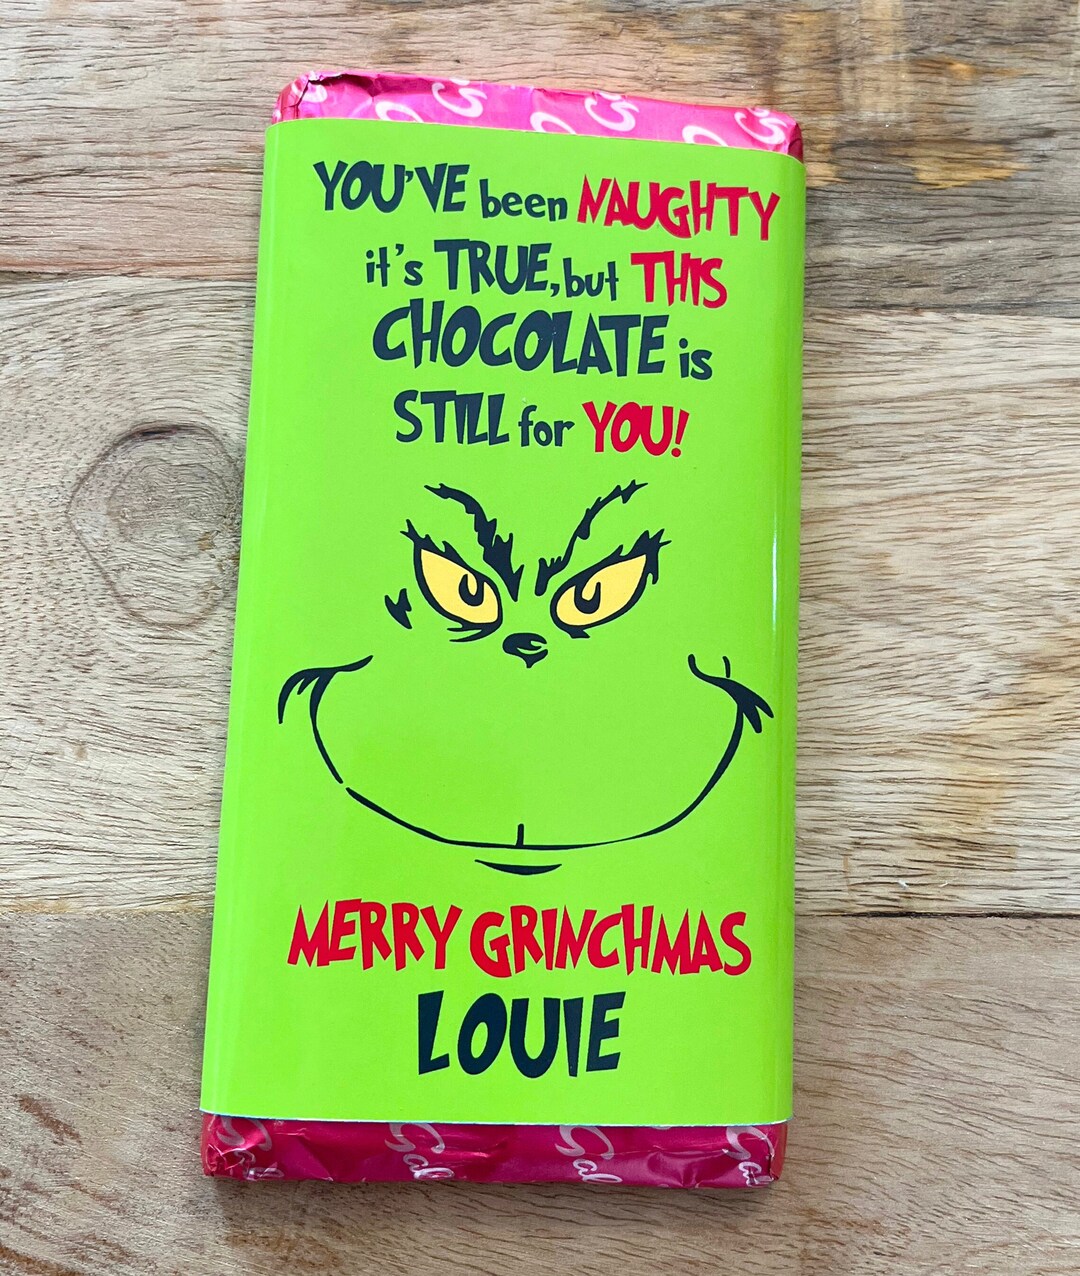 YOU'VE been NAUGHTY
it's TRUE, but THIS
CHOCOLATE is
STILL for YOU!
MERRY GRINCHMAS
LOUIE